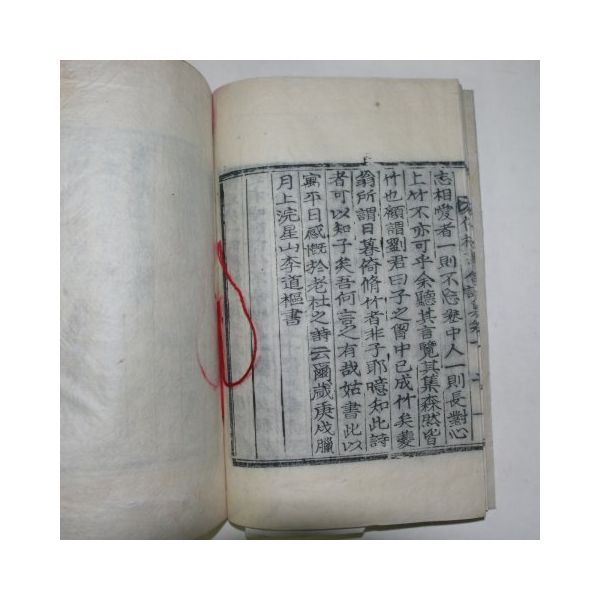 志相愛者一則不忘卷中人一則長對心
上竹不亦可乎余聽其言覽其集森然皆
竹也顧謂劉君曰子之胷中已成竹矣夔
翁所謂日暮倚脩竹者非子耶臆知此詩
者可以知子矣吾何言之有哉姑書此以
寓平日感慨於老杜之詩云爾歲庚戌臘
月上浣星山李道樞書